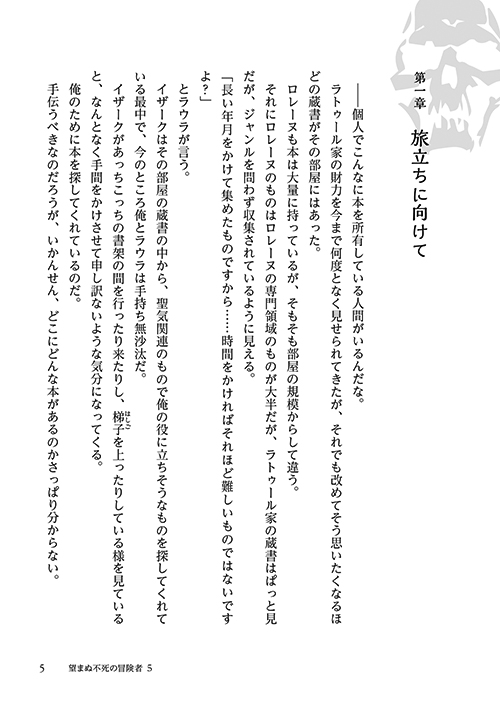 第一章　旅立ちに向けて
――個人でこんなに本を所有している人間がいるんだな。
ラトゥール家の財力を今まで何度となく見せられてきたが、それでも改めてそう思いたくなるほ
どの蔵書がその部屋にはあった。
ロレーヌも本は大量に持っているが、そもそも部屋の規模からして違う。
それにロレーヌのものはロレーヌの専門領域のものが大半だが、ラトゥール家の蔵書はぱっと見
だが、ジャンルを問わず収集されているように見える。
「長い年月をかけて集めたものですから……時間をかければそれほど難しいものではないです
よ？」
とラウラが言う。
イザークはその部屋の蔵書の中から、聖気関連のもので俺の役に立ちそうなものを探してくれて
いる最中で、今のところ俺とラウラは手持ち無沙汰だ。
イザークがあっちこっちの書架の間を行ったり来たりし、梯子を上ったりしている様を見ている
はしご
と、なんとなく手間をかけさせて申し訳ないような気分になってくる。
俺のために本を探してくれているのだ。
手伝うべきなのだろうが、いかんせん、どこにどんな本があるのかさっぱり分からない。
5　望まぬ不死の冒険者 5